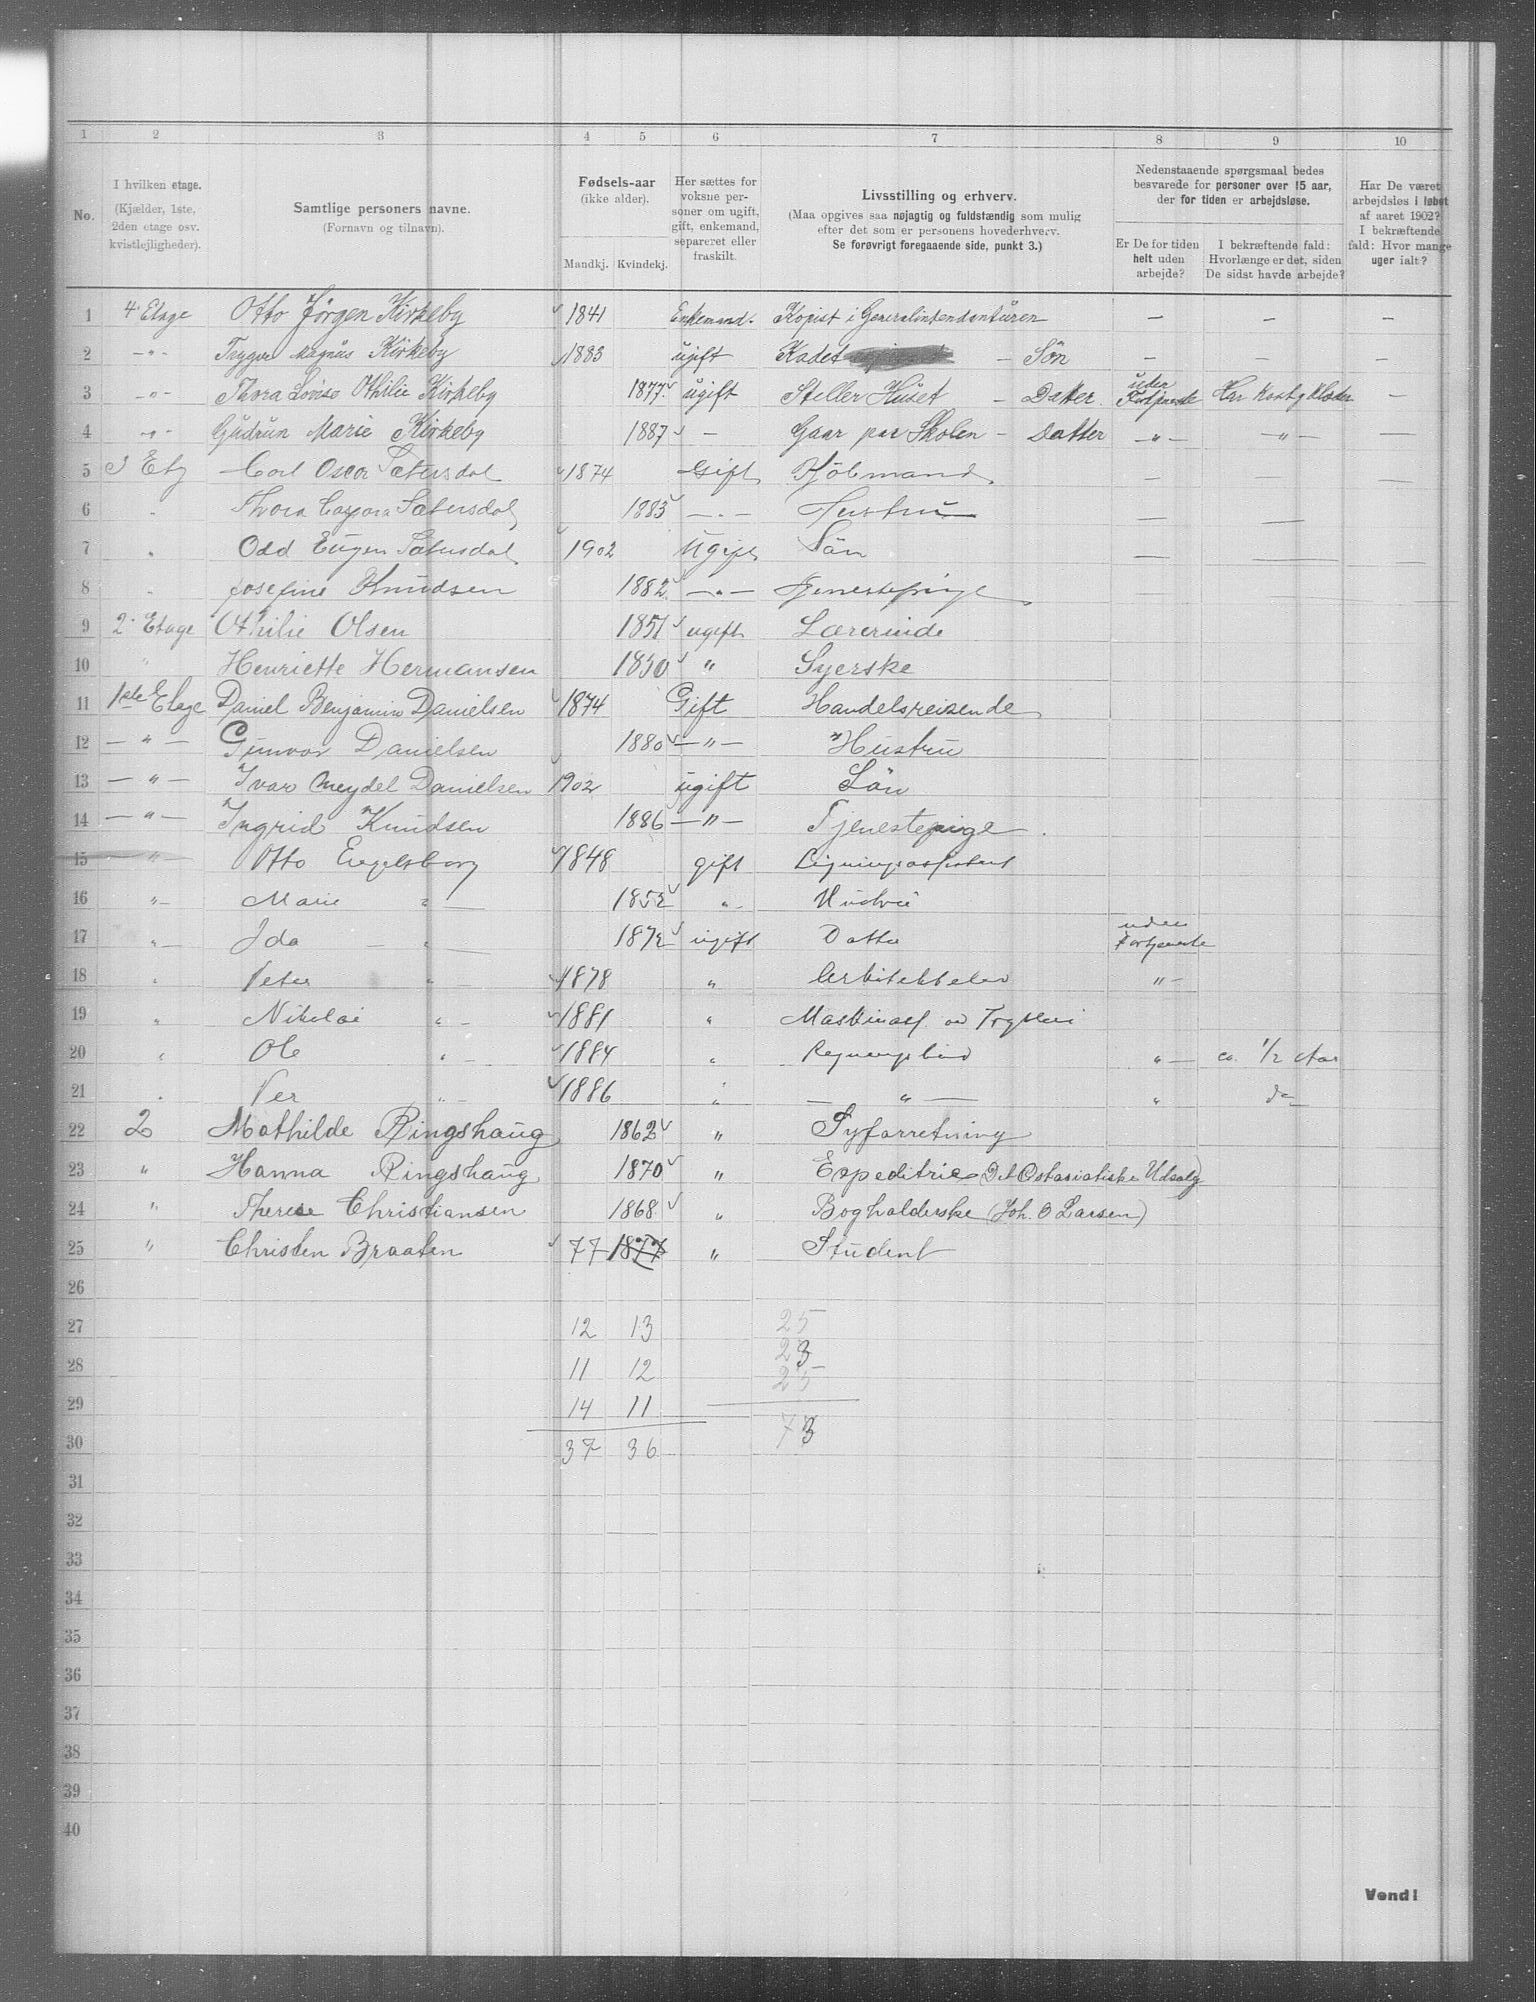 1 2 3 4 5 6 7 8 9 10
No.
I hvilken etage.
(Kjælder, 1ste,
2den etage osv.
kvistlejligheder).
Samtlige personers navne.
(Fornavn og tilnavn).
Fødsels-aar
(ikke alder).
Mandkj. Kvindekj.
Her sættes for
voksne per-
soner om ugift,
gift, enkemand,
separeret eller
fraskilt.
Livsstilling og erhverv.
(Maa opgives saa nøjagtig og fuldstændig som mulig
efter det som er personens hovederhverv.
Se forøvrigt foregaaende side, punkt 3.)
Nedenstaaende spørgsmaal bedes
besvarede for personer over 15 aar,
der for tiden er arbejdsløse.
Er De for tiden
helt uden
arbejde?
I bekræftende fald:
Hvorlænge er det, siden
De sidst havde arbejde?
Har De været
arbejdsløs i løbet
af aaret 1902?
I bekræftende
fald: Hvor mange
uger ialt?
1 4 Etage Otto Jørgen Kirkeby 1841 Enkemand. Kopist i Generalintendantüren — — —
2 -"- Trygve Magnus Kirkeby 1883 ugift Kadet — Søn — — —
3 -"- Thora Lovise Othilie Kirkeby 1877 ugift Steller Huset — Datter uden Fortjeneste Har Kost og Klæder —
4 -"- Gudrun Marie Kirkeby 1887 - Gaar paa Skolen — Datter -"- -"- —
5 3 Etg Carl Oscar Sætersdal 1874 Gift Kjøbmand — — —
6 " Thora Caspara Sætersdal 1883 -"- Hustru — —
7 " Odd Eugen Sætersdal 1902 Ugift Søn — — —
8 " Josefine Knudsen 1882 -"- Tjenestepige — — —
9 2. Etage Othilie Olsen 1851 ugift Lærerinde
10 " Henriette Hermansen 1850 " Syerske
11 1ste Etage Daniel Benjamin Danielsen 1874 Gift Handelsreisende
12 -"- Gunvor Danielsen 1880 -"- Hustru
13 -"- Ivar Meydel Danielsen 1902 ugift Søn
14 -"- Ingrid Knudsen 1886 -"- Tjenestepige
15 " Otto Engelsborg 1848 gift Ligningsassistent
16 " Marie " 1852 " Hustru
17 " Ida " 1872 ugift Datter uden Fortjeneste
18 " Peter " 1878 " Arkitektelev "
19 " Nikolai " 1881 " Maskinass. ved Trykkeri
20 " Ole " 1884 " " ca. 1/2 Aar
21 " Per " 1886 " " " do
22 2 Mathilde Ringshaug 1862 " Syforretning
23 " Hanna Ringshaug 1870 " Expeditrice (Det Ostasiatiske Udsalg)
24 " Therese Christiansen 1868 " Bogholderske (Joh. O Larsen)
25 " Christen Braaten 77 1877 " Student
26
27 12 13 25
28 11 12 23
25
29 14 11
30 37 36 73
31
32
33
34
35
36
37
38
39
40
Vend!